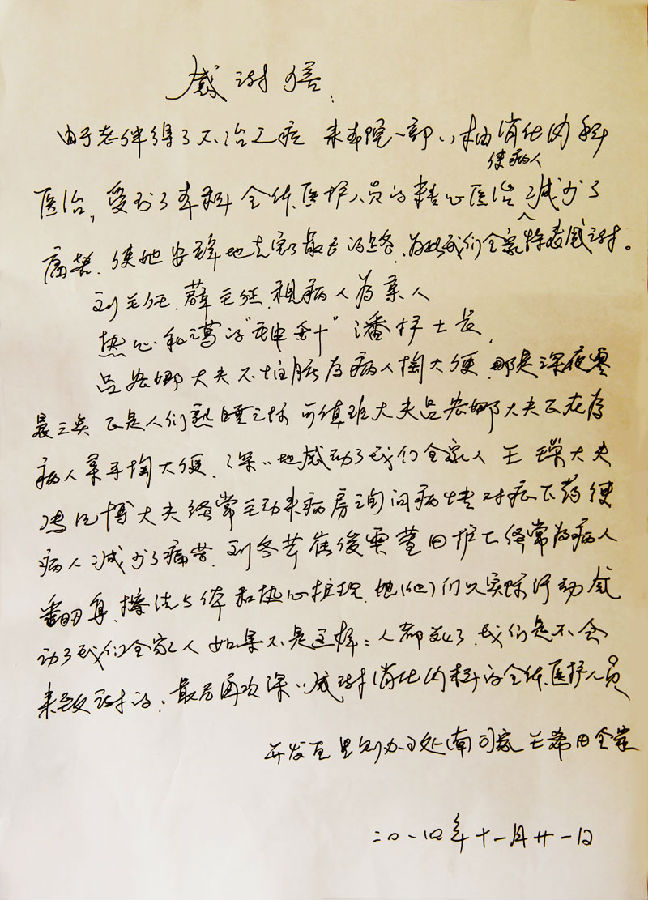 感谢信：
由于老伴得了不治之症 来本院一部八楼消化内科
使病人
医治，受到了本科全体医护人员的精心医治 减少了
痛苦，使她安静地走完了最后的路，为此我们全家特表感谢。
刘主任、薛主任，视病人为亲人
热心和蔼的 潘护士长，
吕安娜大夫不怕脏为病人掏大便，那是深夜零
晨三点 正是人们熟睡之时 可值班大夫吕安娜大夫正在为
病人亲手掏大便，深深地感动了我们全家人 王 大夫
冯 博大夫经常主动来病房询问病情对症下药使
病人减少了痛苦，刘冬芹 崔俊 护士经常为病人
翻身，擦洗身体和热心护理，她（他）们以实际行动感
动了我们全家人 如果不是这样：人都死了，我们是不会
来致谢的，最后再次深深感谢消化内科的全体医护人员
开发区 办事处南司家 王希田全家
二〇一四年十一月廿一日